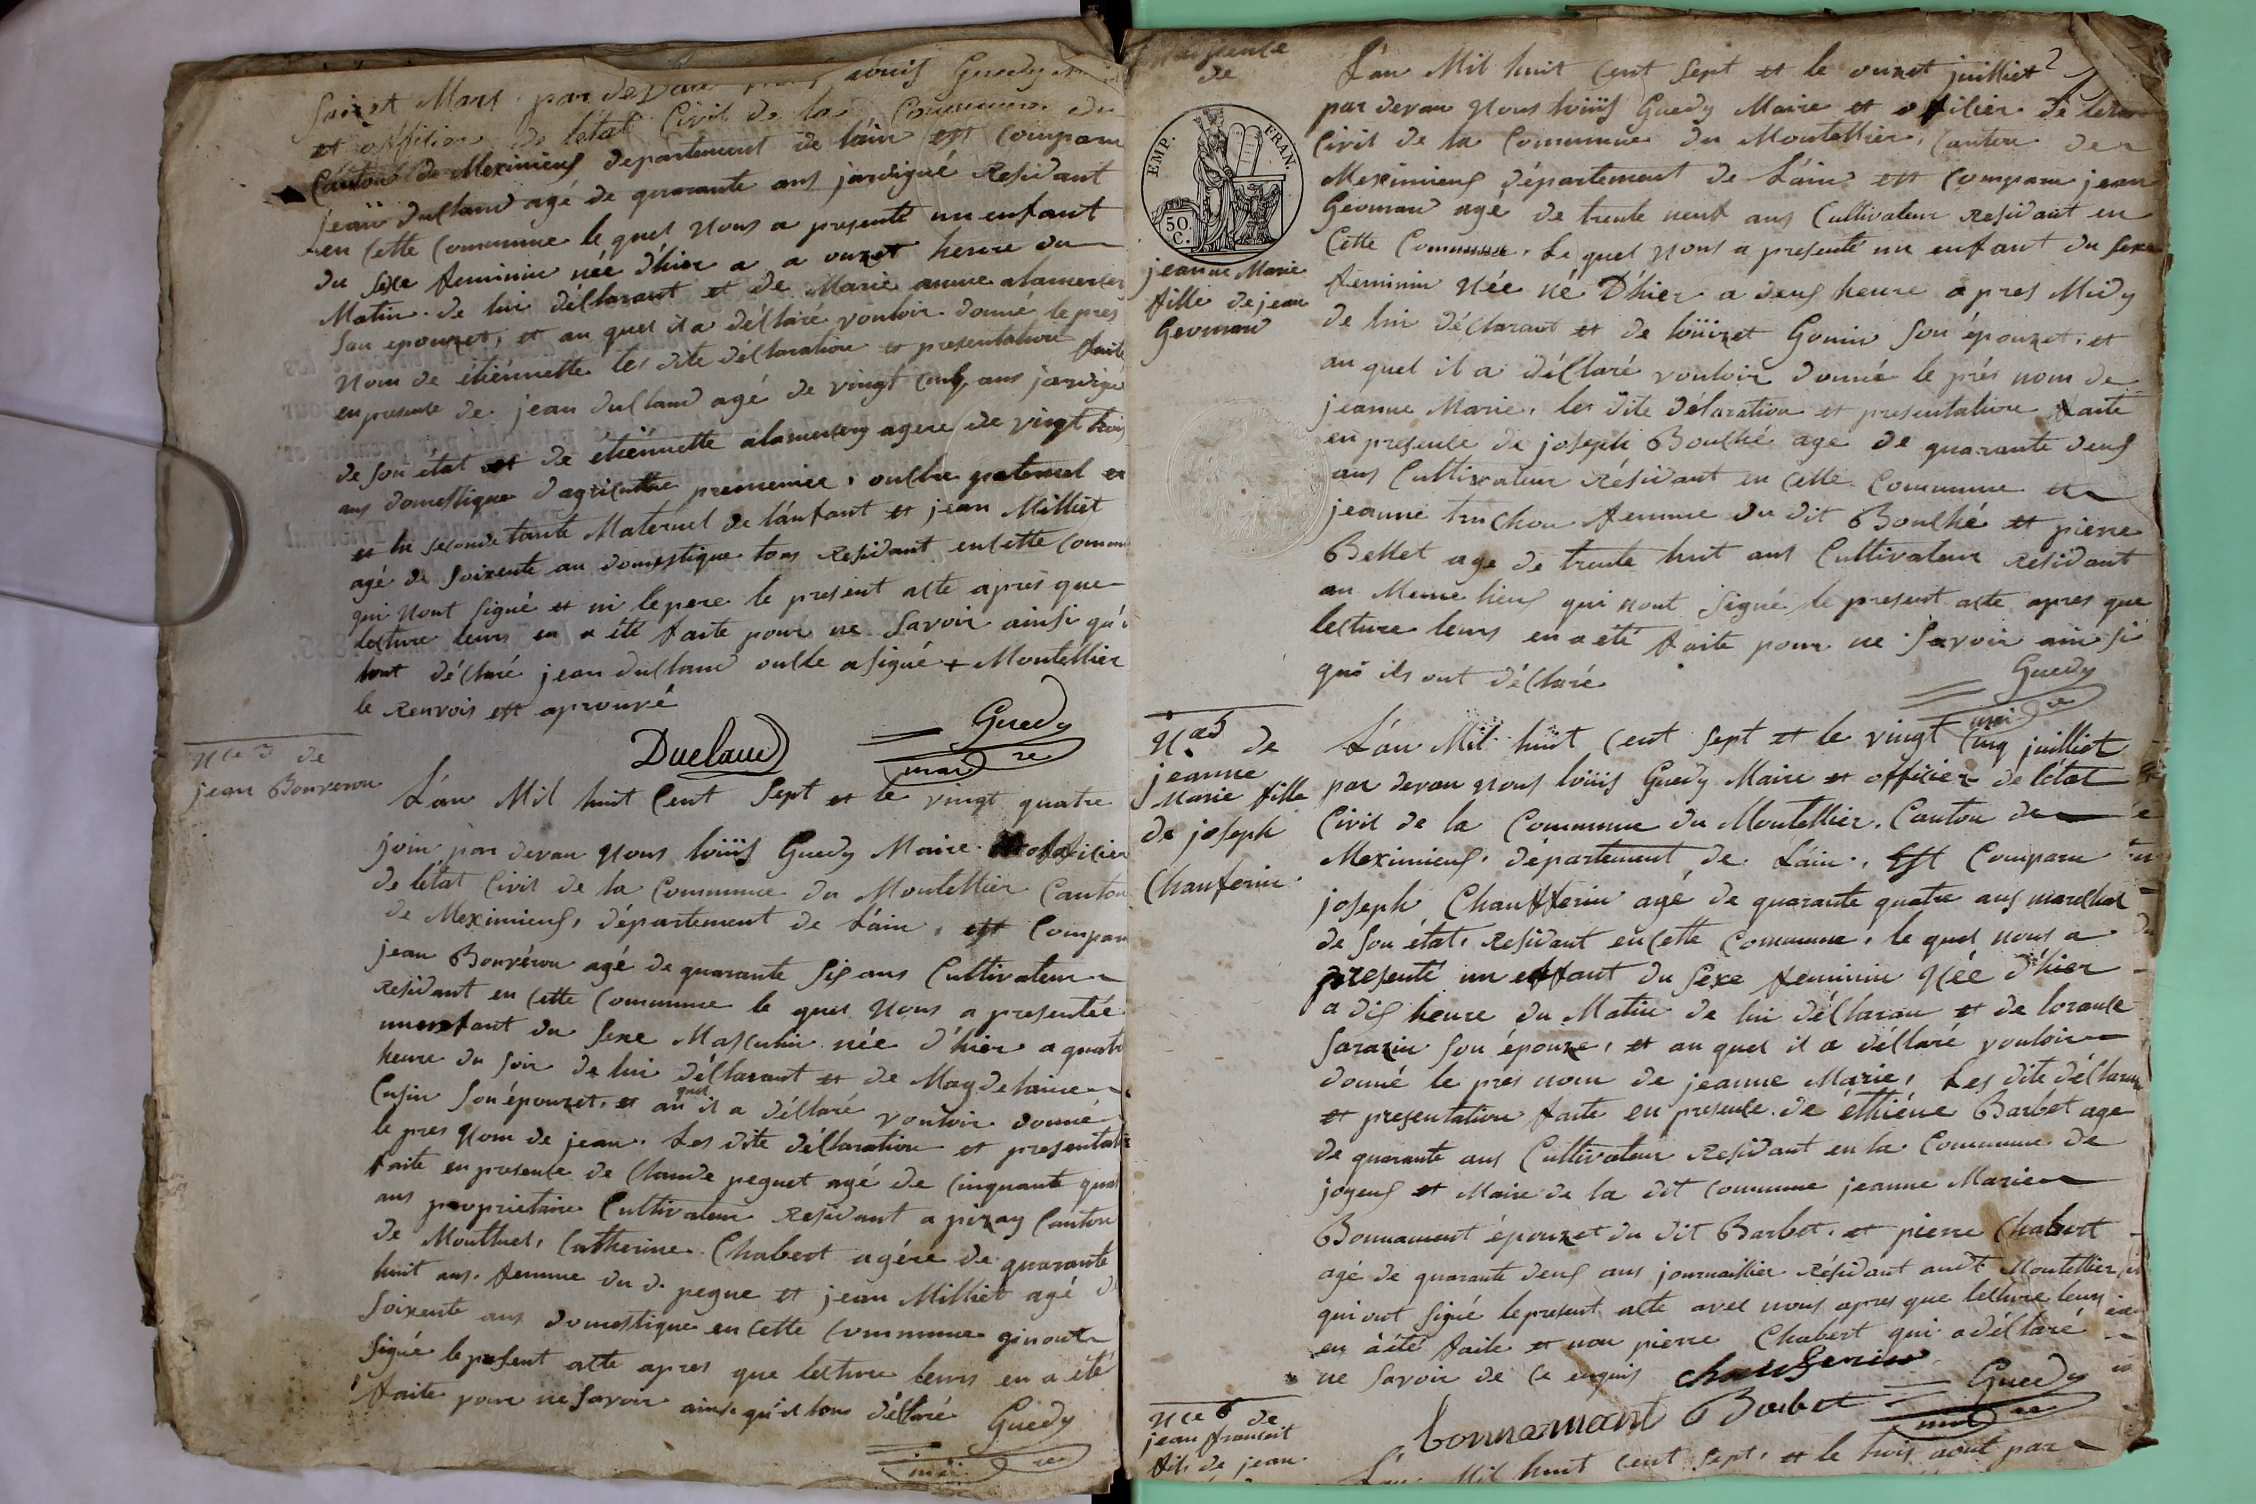 Seizet Mars par devan nous louis Guedy
et offitier de létat Civil de la Commune du
Canton de Meximieuf departement de láin est Compara
jean duclaud agé de quarante ans jardigné Residant
en cette Commune le quel nous a presenté un enfant
du sexe feminin née d'hier a a onzet heure du
Matin de lui déclarant et de Marie anne alamersery
son epouzet, et au quel il a déclaré vouloir donné le pres
nom de étiénnette les dite déclaration et presentation faite
en presente de jean duclaud agé de vingt cinq ans jardigé
de son état et de étiénnette alamersery agere de vingt trois
ans domestique d'agriculture premier, oncle paternel et
et la seconde tante Maternel de lánfant et jean Milliet
agé de soixente an domestique tous Residant en cette Commu
qui nont signé et ni le pere le present acte après que
lecture leurs en a été faite pour ne savoir ainsi qu'i
lont déclaré jean duclaud oncle a signé + Montellier
le Renvois est aprouvé
Duclaud Guedy
maire
N.ce 3 de
jean Bouveron
Lán Mil huit Cent Sept et le vingt quatre
join par devan nous louis Guedy Maire et offitier
de létat Civil de la Commune du Montellier Canton
de Meximieuf, département de Láin, est Compara
jean Bouvéron agé de quarante six ans Cultivateur
Residant en cette Commune le quel nous a presentée
un enfant du sexe Masculin née d'hier a quatre
heure du soir de lui déclarant et de Magdelaine
Cusin son épouzet, et au quel il a déclaré vouloir donné
le pres nom de jean. Les dite déclaration et presentati
faite en presente de Claude peguet agé de cinquante quat
ans proprietaire Cultivateur Residant a pizay Canton
de Montluel, Catherine Chabert agére de quarante
huit ans. femme du d. pegue et jean Milliet agé de
soixente ans domestique en cette commune qi nont
signé le present acte apres que lecture leurs en a été
faite pour ne savoir ainsi qu'il lons déclaré Guedy
maire
de
EMP. FRAN.
50 C.
jeanne Marie
fille de jean
Geoman
Lán Mil huit Cent Sept et le onzet juilliet
par devan nous louis Guedy Maire et offitier de létat
Civil de la Commune du Montellier, Canton de
Meximieuf département de Láin est Compara jean
Geoman agé de trente neuf ans Cultivateur Residant en
Cette Commune. Le quel nous a presenté un enfant du sexe
feminin née né D'hier a deuf heure apres Midy
de lui déclarant et de louizet Gonin son épouzet, et
au quel il a déclaré vouloir donné le prés nom de
jeanne Marie, les dite déclaration et presentation faite
en presente de joseph Bouché age de quarante deuf
ans Cultivateur Résidant en Cette Commune et
jeanne truchon femme du dit Bouché et pierre
Bellet age de trente huit ans Cultivateur Residant
au Meme lieuf qui nont signé le present acte apres que
lecture leurs en a eté faite pour ne savoir ainsi
qu'ils ont déclaré
Guedy
maire
N.ce 5 de
jeanne
Marie fille
de joseph
Chauferin
Lán Mil huit Cent Sept et le vingt Cinq juilliet
par devan nous louis Guedy Maire et officier de létat
Civil de la Commune du Montellier. Canton de
Meximieuf, département de Láin, Est Compara
joseph Chaufferin agé de quarante quatre ans marechal
de son état, Residant en cette Commune, le quel nous a
presenté un enfant du sexe feminin née d'hier
a dis heure du Matin de lui déclaran et de lorance
sarazin son épouze, et au quel il a déclaré vouloir
donné le pres nom de jeanne Marie, Les dite déclaration
et presentation faite en presente de éthiéne Barbet age
de quarante ans Cultivateur Residant en la Commune de
joyeuf et Maire de la dit commune jeanne Marie
Bonnament épouzet du dit Barbet, et pierre Chabert
agé de quarante deuf ans journaillier Résidant audt Montellier
qui ont signé le present acte avec nous apres que lecture leurs
en à été faite et non pierre Chabert qui a déclaré
ne savoir de ce enquis Chauferin
Bonnamant Barbet Guedy
maire
N.ce 6 de
jean fransoit
fils de jean
Lán Mil huit Cent Sept, et le trois aout par